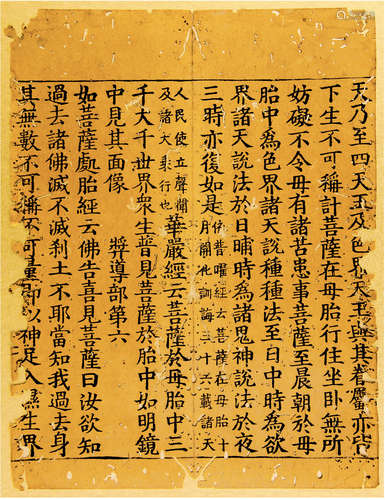 天乃至四天王及色界天王與其眷屬亦皆
下生不可稱計菩薩在母胎行住坐卧無所
妨礙不令母有諸苦患事菩薩至晨朝於母
胎中為色界諸天說種種法至日中時為欲
界諸天說法於日晡時為諸鬼神說法於夜
三時亦復如是依普曜經云菩薩在母胎十
月開化訓誨三十六載諸天
人民使立聲聞
及諸大乘行也華嚴經云菩薩於母胎中三
千大千世界衆生普見菩薩於胎中如明鏡
中見其面像　奬導部第六
如菩薩處胎經云佛告喜見菩薩曰汝欲知
過去諸佛滅不滅刹土不耶當知我過去身
其無數不可稱不可量即以神足入無生界